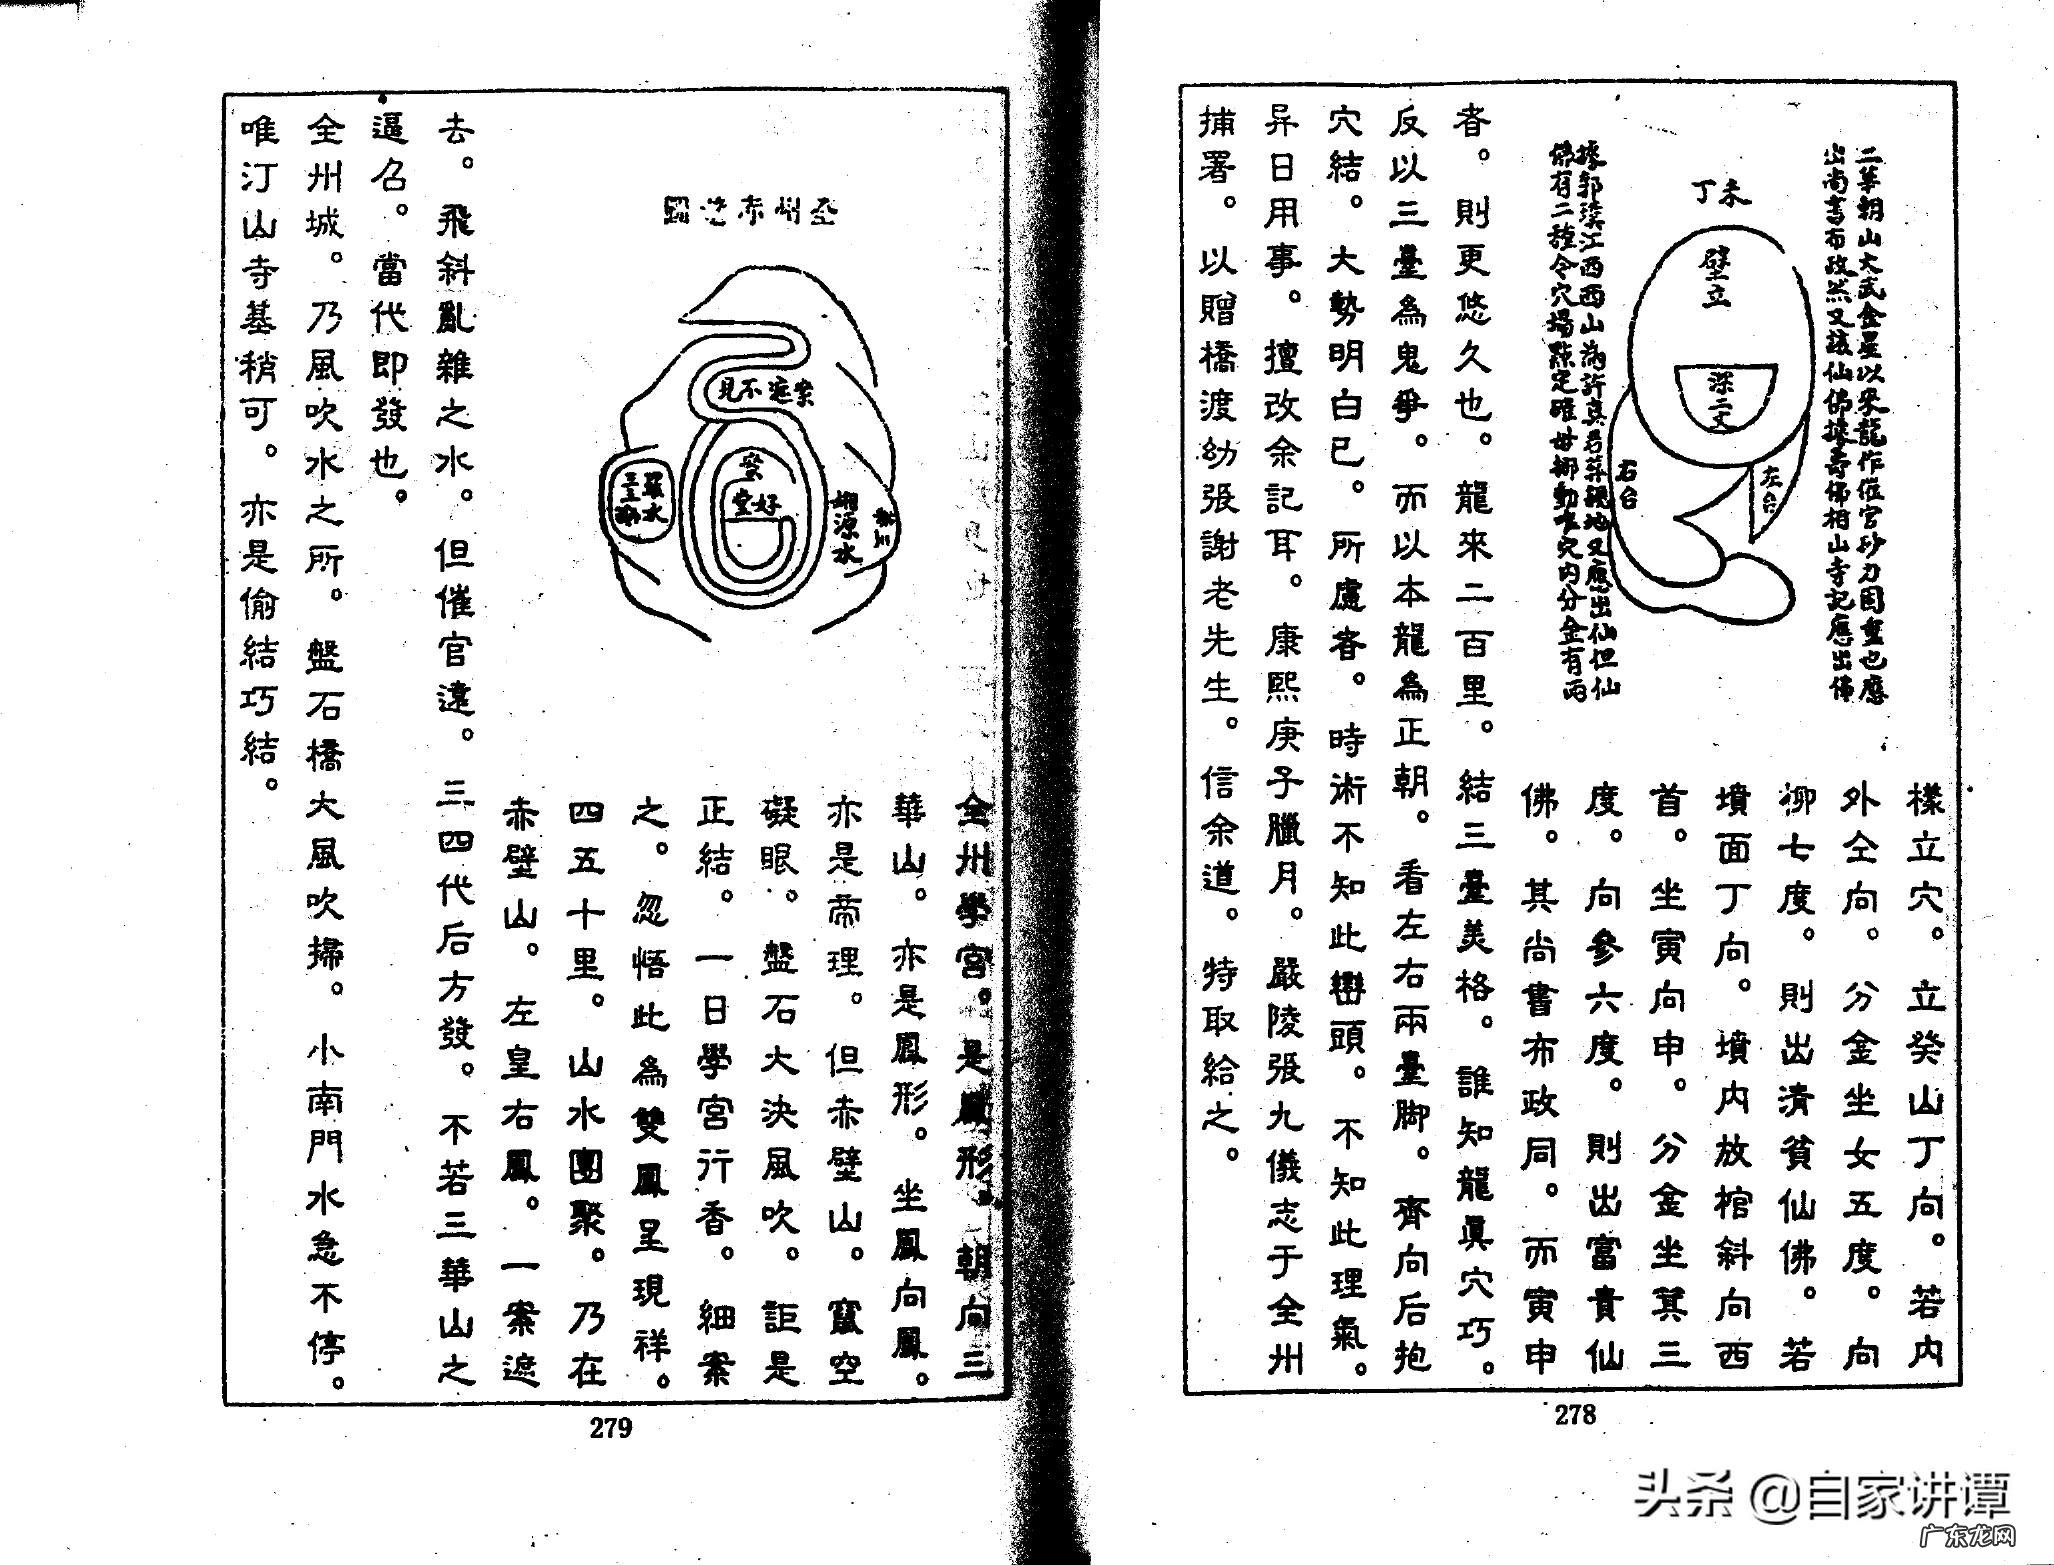 三華朝山大武金星以來龍作催官砂力固重也應
出尚書布政然又該仙佛據壽佛相山寺記應出佛
未丁
壁立
深二丈
左台
右台
據郭璞江西西山為許真君葬親地又應出仙但仙
佛有二種令穴場踪定確毋挪動唯穴內分金有兩
樣立穴。立癸山丁向。若內
外仝向。分金坐女五度。向
柳七度。則出清貧仙佛。若
墳面丁向。墳內放棺斜向西
首。坐寅向申。分金坐箕三
度。向參六度。則出富貴仙
佛。其尚書布政同。而寅申
者。則更悠久也。龍來二百里。結三臺美格。誰知龍真穴巧。
反以三臺為鬼爭。而以本龍為正朝。看左右兩臺脚。齊向后抱
穴結。大勢明白已。所慮者。時術不知此巒頭。不知此理氣。
异日用事。擅改余記耳。康熙庚子臘月。嚴陵張九儀志于全州
捕署。以贈橋渡幼張謝老先生。信余道。特取給之。
278
案遮不見
好堂
羅水
源水
全州學宮。是鳳形。朝向三
華山。亦是鳳形。坐鳳向鳳。
亦是帝理。但赤壁山。竄空
礙眼。盤石大決風吹。詎是
正結。一日學宮行香。細案
之。忽悟此為雙鳳呈現祥。
四五十里。山水團聚。乃在
赤壁山。左皇右鳳。一案遮
去。飛斜亂雜之水。但催官遠。三四代后方發。不若三華山之
逼召。當代即發也。
全州城。乃風吹水之所。盤石橋大風吹掃。小南門水急不停。
唯汀山寺基稍可。亦是偷結巧結。
279
头条 @自家讲谭
广东龙网